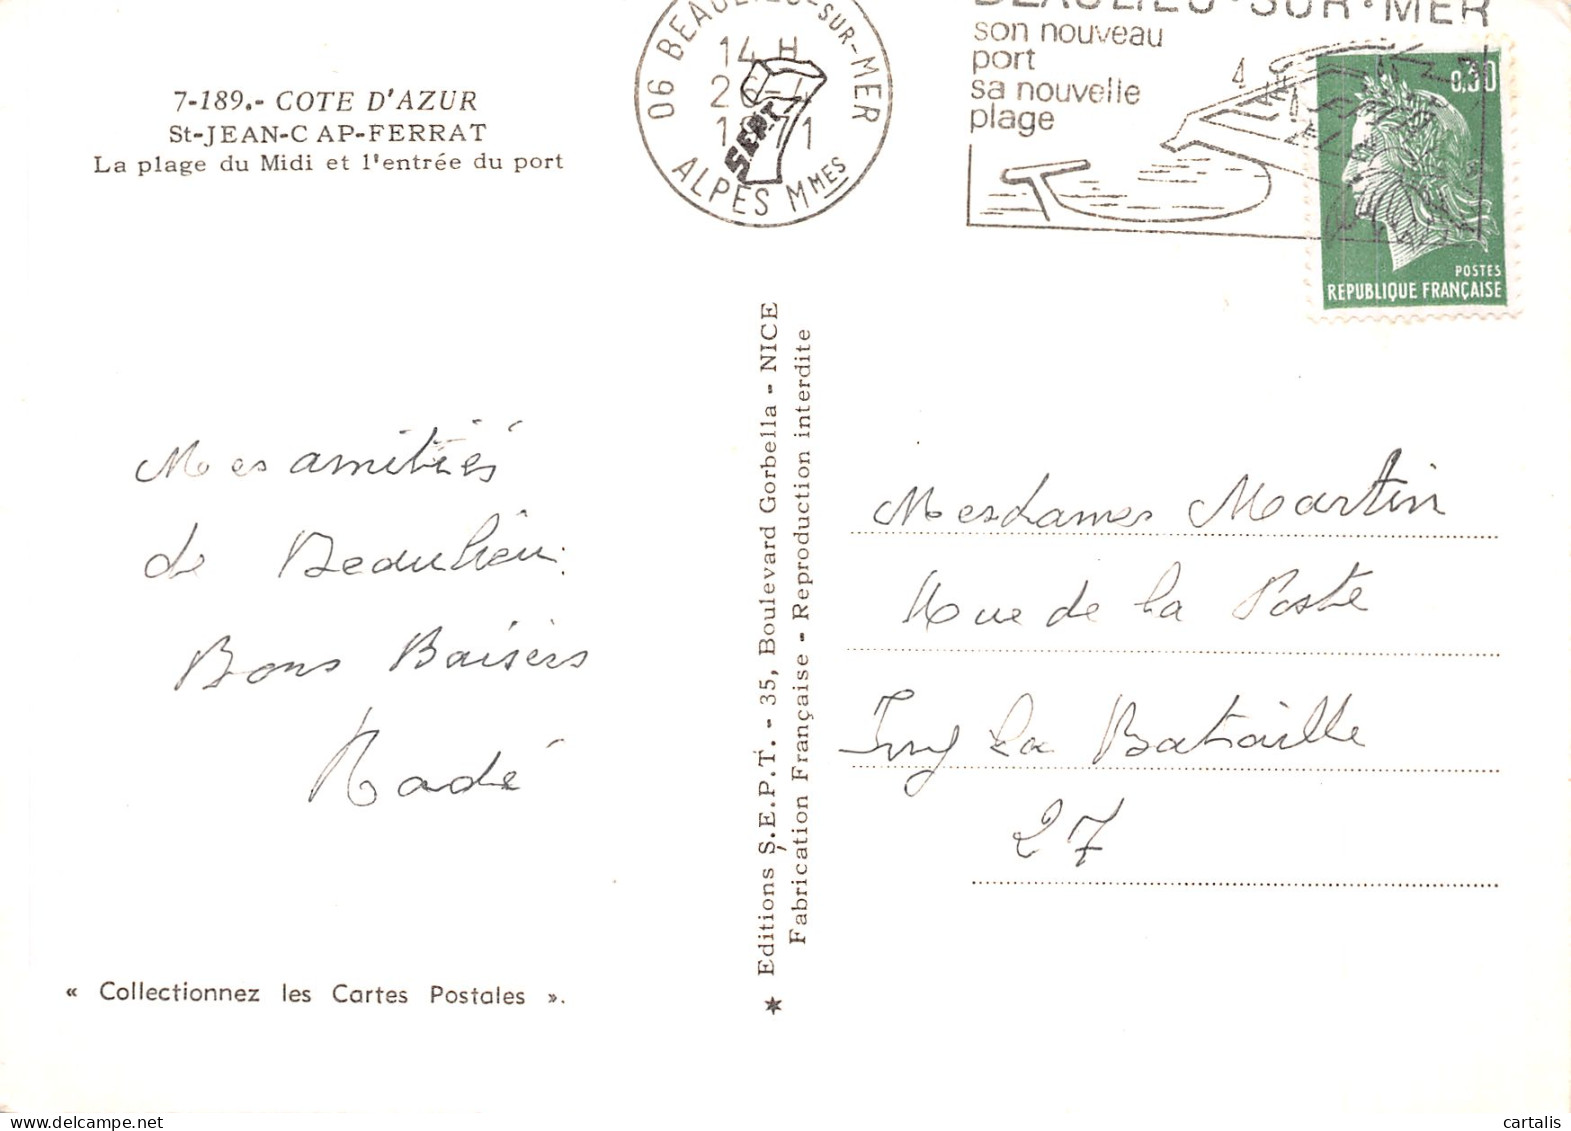 7-189.- COTE D'AZUR
St-JEAN-C AP-FERRAT
La plage du Midi et l'entrée du port
06 BEAULIEU-SUR-MER
14 H
26-4
1971
ALPES MMES
SEPT
BEAULIEU·SUR·MER
son nouveau
port
sa nouvelle
plage
0,30
POSTES
REPUBLIQUE FRANÇAISE
Mes amitiés
de Beaulieu.
Bons Baisers
Editions S.E.P.T. - 35, Boulevard Gorbella - NICE
Fabrication Française - Reproduction interdite
Mesdames Martin
Rue de la Poste
Ivry la Bataille
27
« Collectionnez les Cartes Postales ».
cartalis